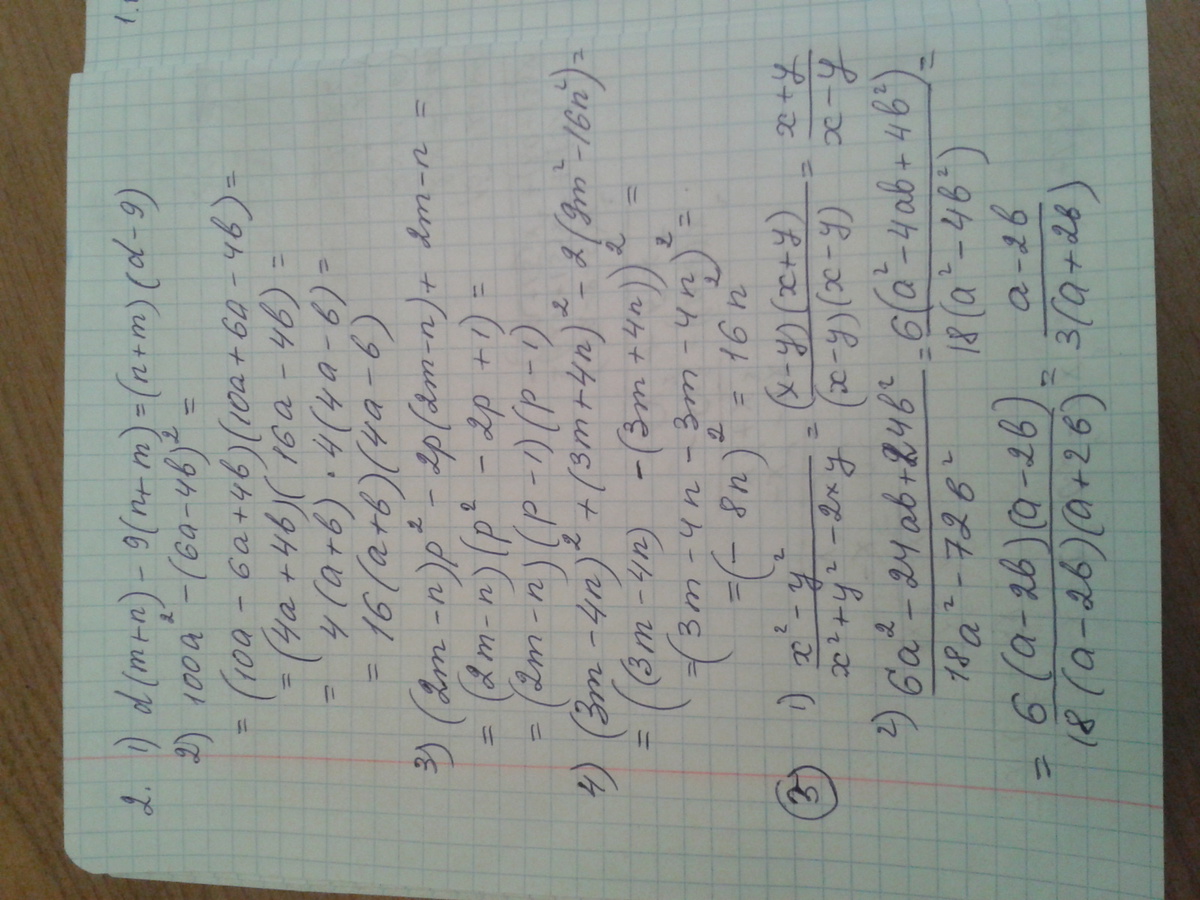 2. 1) d(m+n) - 9(n+m) = (n+m)(d-9)
2) 100a² - (6a-4b)² =
= (10a - 6a + 4b)(10a + 6a - 4b) =
= (4a + 4b)(16a - 4b) =
= 4(a+b) · 4(4a - b) =
= 16(a+b)(4a - b)
3) (2m - n)p² - 2p(2m-n) + 2m - n =
= (2m - n)(p² - 2p + 1) =
= (2m - n)(p - 1)(p - 1)
4) (3m - 4n)² + (3m + 4n)² - 2(9m² - 16n²) =
= ((3m - 4n) - (3m + 4n))² =
= (3m - 4n - 3m - 4n)² =
= (- 8n)² = 16n²
3 1) \frac{x² - y²}{x² + y² - 2xy} = \frac{(x-y)(x+y)}{(x-y)(x-y)} = \frac{x+y}{x-y}
2) \frac{6a² - 24ab + 24b²}{18a² - 72b²} = \frac{6(a² - 4ab + 4b²)}{18(a² - 4b²)} =
= \frac{6(a-2b)(a-2b)}{18(a-2b)(a+2b)} = \frac{a-2b}{3(a+2b)}